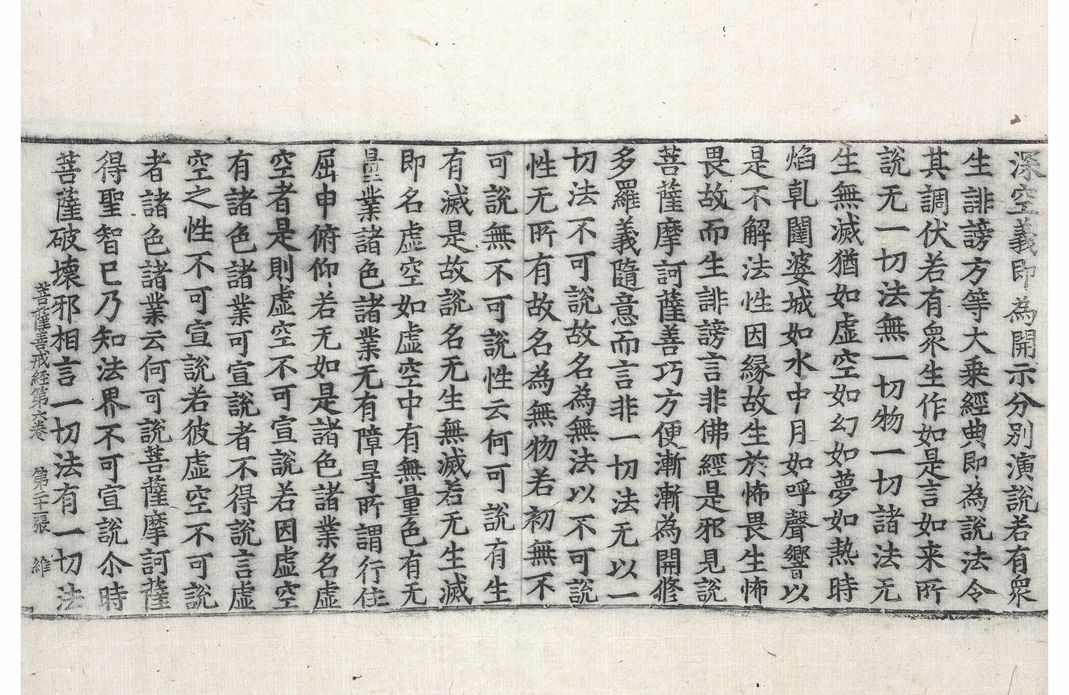 深空義即為開示分別演說若有衆
生誹謗方等大乗經典即為說法令
其調伏若有衆生作如是言如来所
說无一切法無一切物一切諸法无
生無滅猶如虛空如幻如夢如熱時
焰乹闥婆城如水中月如呼聲響以
是不解法性因緣故生於怖畏生怖
畏故而生誹謗言非佛經是邪見說
菩薩摩訶薩善巧方便漸漸為開修
多羅義隨意而言非一切法无以一
切法不可說故名為無法以不可說
性无所有故名為無物若初無不
可說無不可說性云何可說有生
有滅是故說名无生無滅若无生滅
即名虛空如虛空中有無量色有无
量業諸色諸業无有障㝵所謂行住
屈申俯仰若无如是諸色諸業名虛
空者是則虛空不可宣說若因虛空
有諸色諸業可宣說者不得說言虛
空之性不可宣說若彼虛空不可說
者諸色諸業云何可說菩薩摩訶薩
得聖智已乃知法界不可宣說尒時
菩薩破壞邪相言一切法有一切法
菩薩善戒經第六卷 第二十一張 維